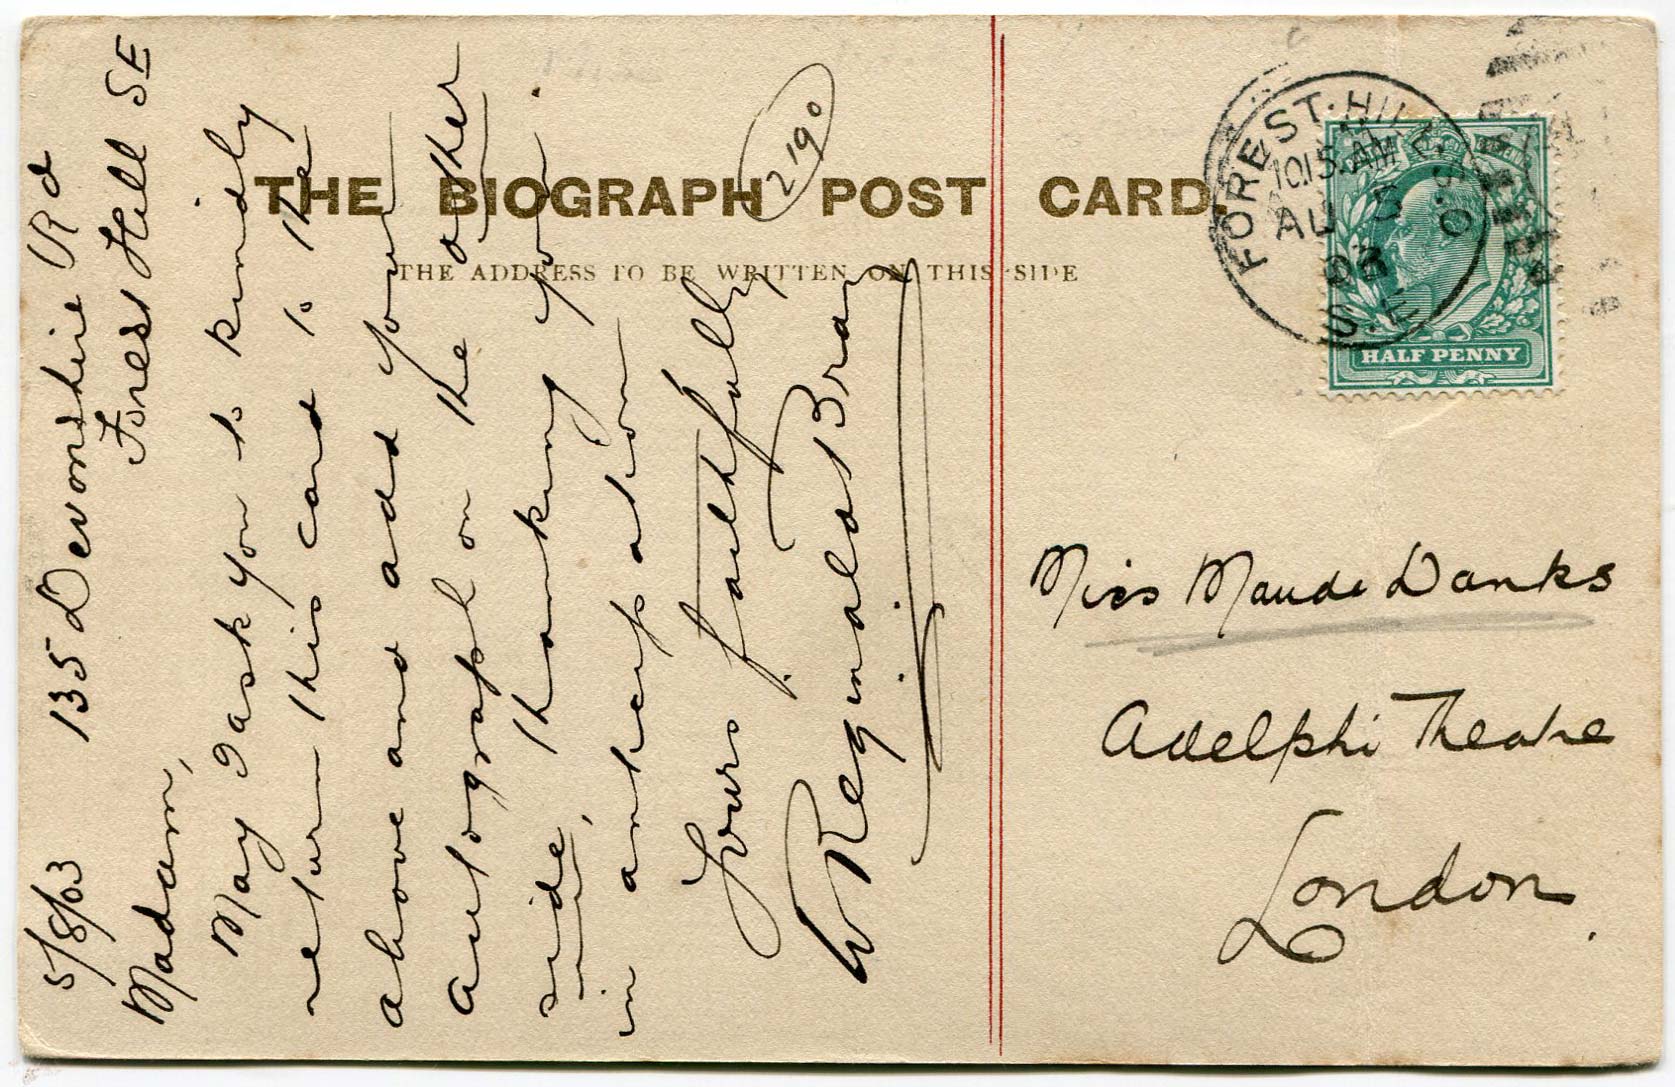 THE BIOGRAPH POST CARD.
THE ADDRESS TO BE WRITTEN ON THIS SIDE
2190
5/8/03 135 Devonshire Rd
Forest Hill SE
Madam,
May I ask you to kindly
return this card to the
above and add your
autograph on the other
side, thanking you
in anticipation
Yours faithfully
W Reginald Bray
FOREST·HILL S.O
10.15.AM
AU 5
03
S.E
HALF PENNY
Miss Maude Danks
Adelphi Theatre
London.